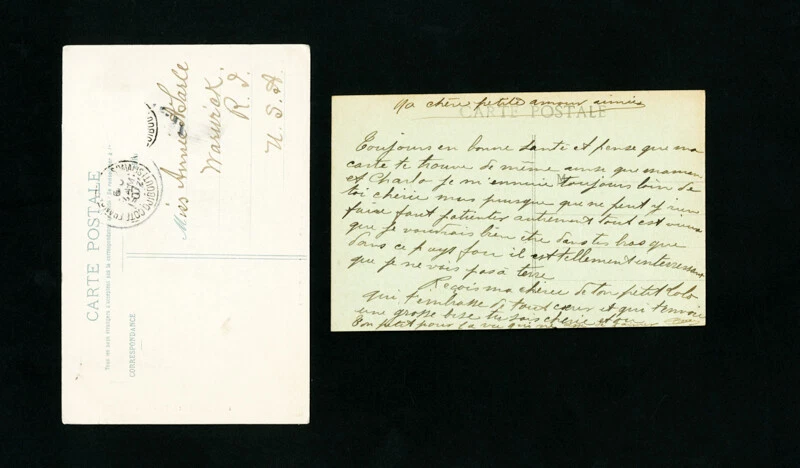 CARTE POSTALE
Tous les pays étrangers n'acceptent pas la correspondance
CORRESPONDANCE
DJIBOUTI
Miss Annie Earle
Warwick.
R. I.
U. S. A
Ma chère petite amour aimée
CARTE POSTALE
Toujours en bonne santé et pense que ma
carte te trouve de même ainsi que maman
et Charlo je m'ennuie toujours loin de
toi chérie mais puisque que ne peut y rien
faire faut patienter autrement tout est
que je voudrais bien être dans tes bras que
dans ce pays il est tellement interressant
que je ne vais pas à terre
Reçois ma chérie de ton petit Lolo
qui t'embrasse de tout cœur et qui t'envoie
une grosse bise tu sais chérie
ton petit pour la vie qui